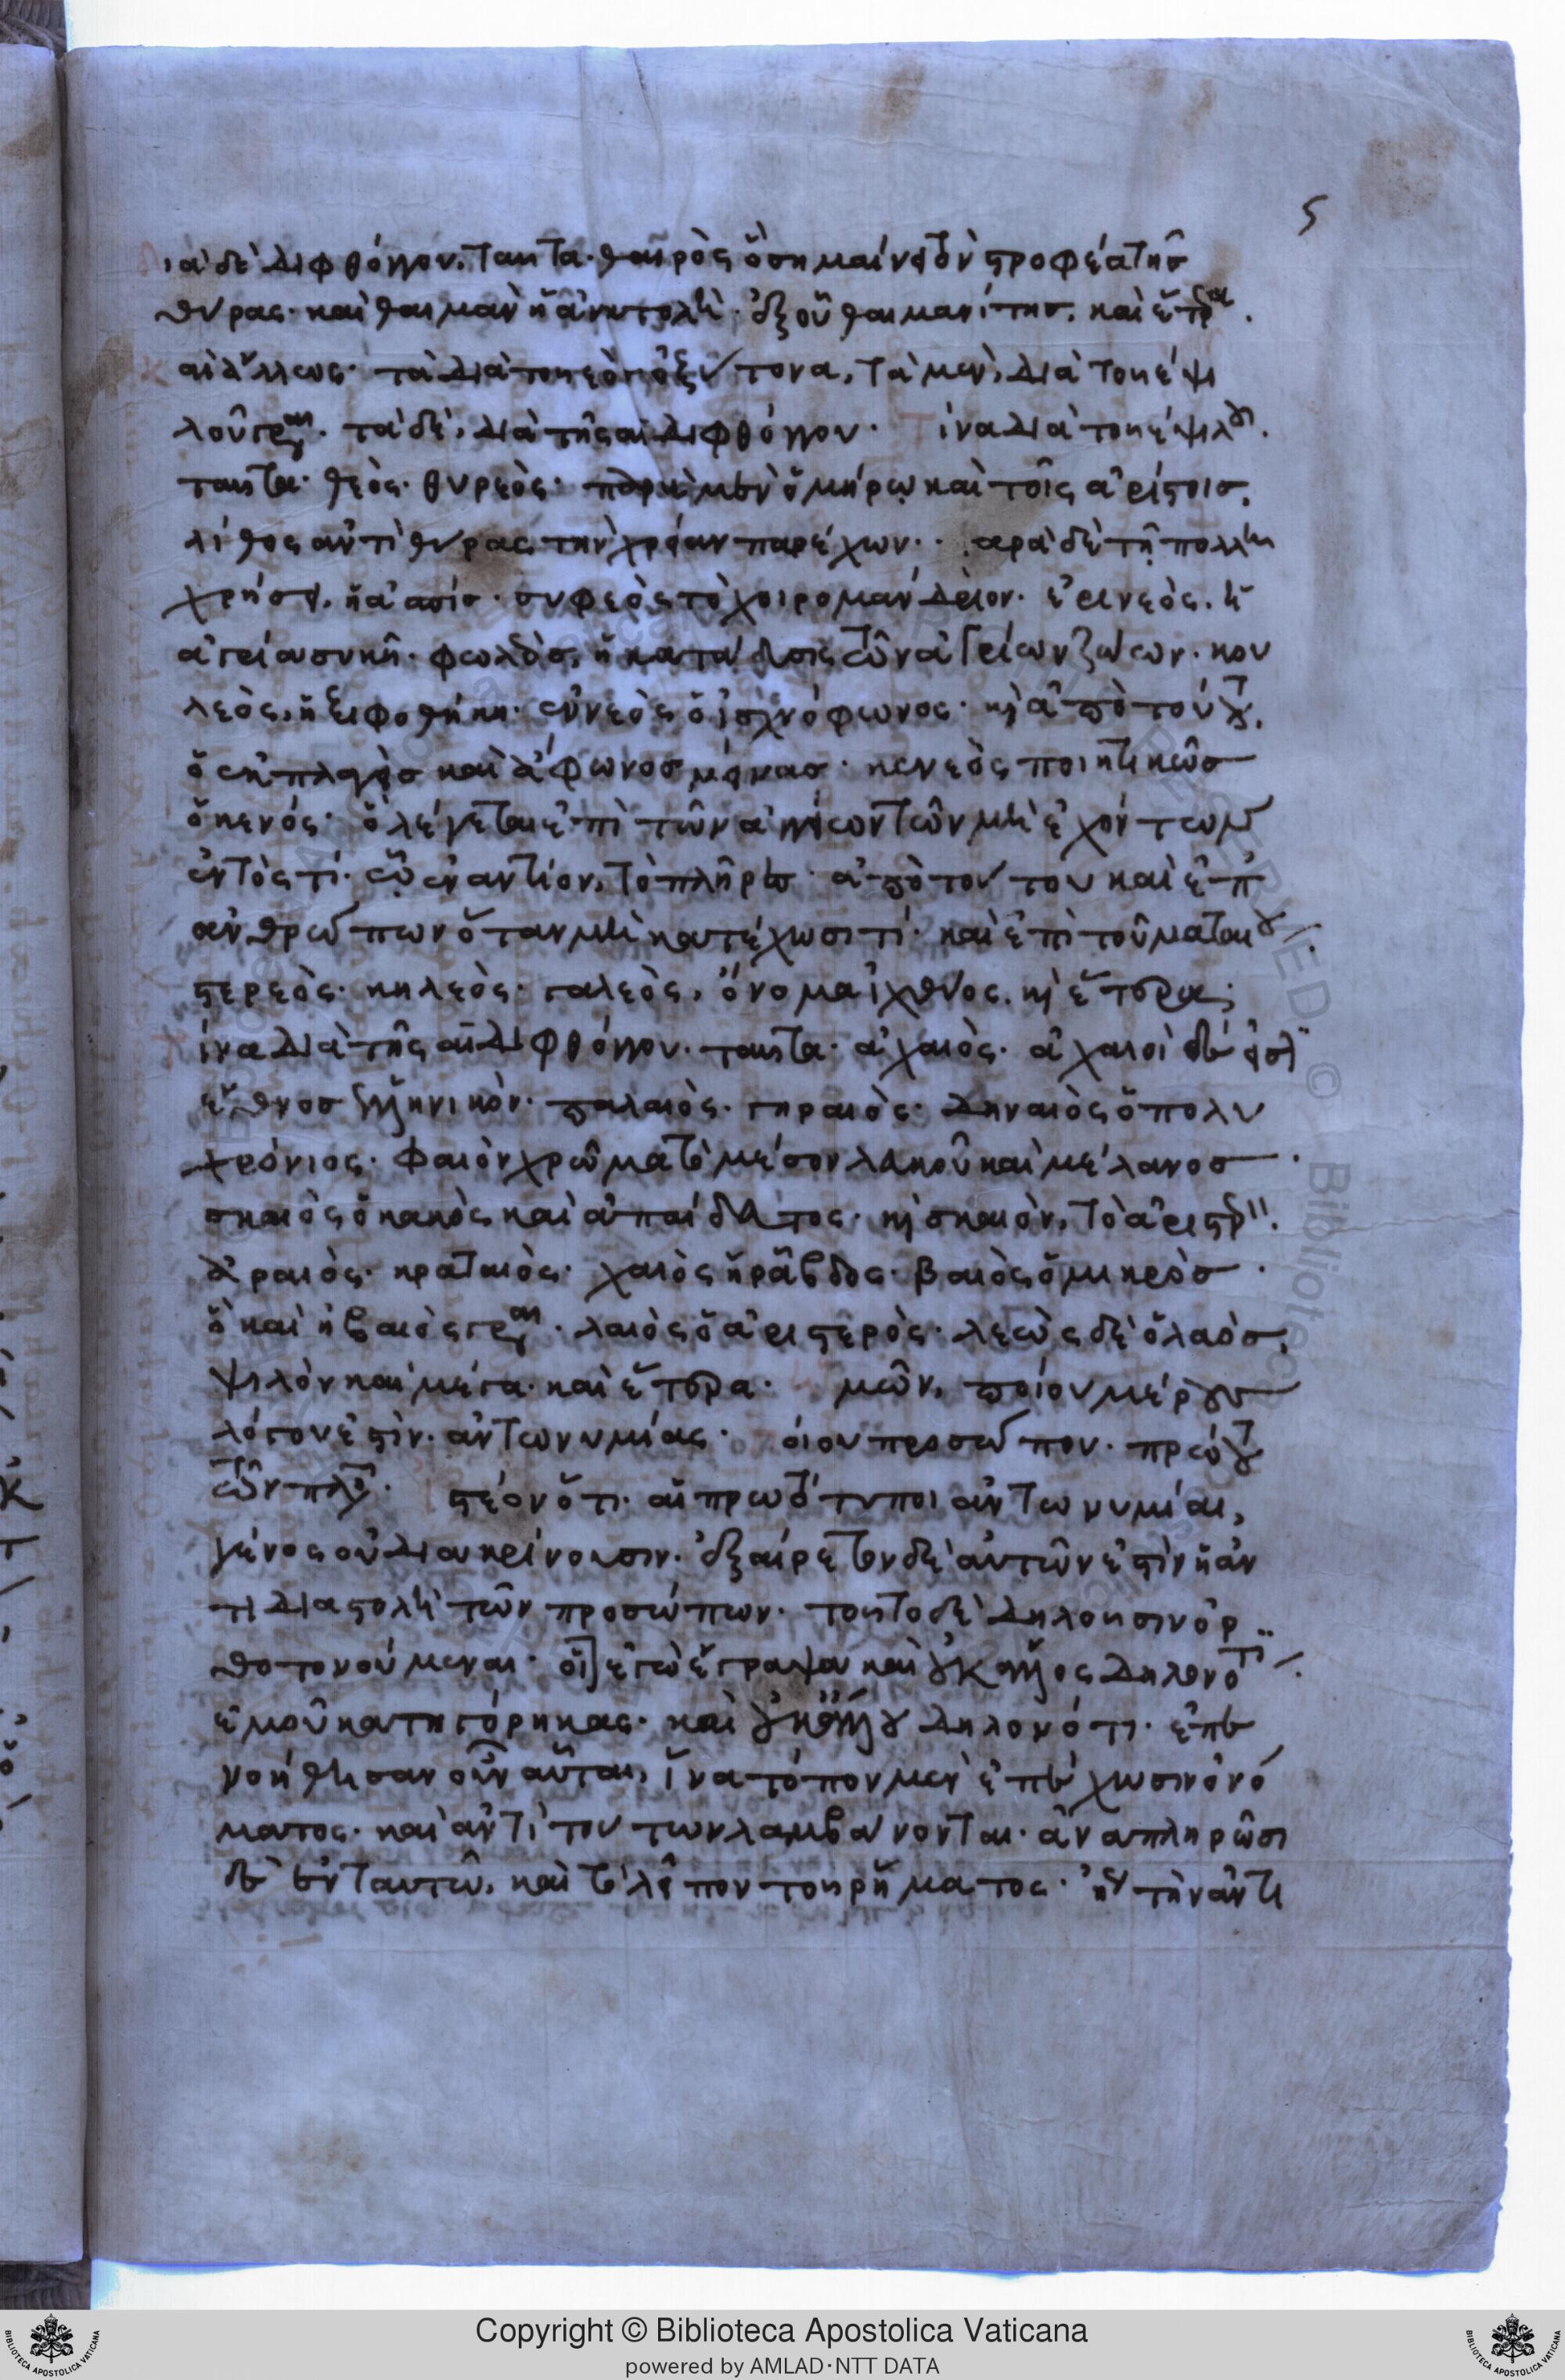 5
ια δὲ διφθόγγου, ταῦτα· θαιρὸς ὁ σημαίνει τὸν στροφέα τῆς
θύρας· καὶ θαιμὰν ἡ ἀνατολὴ· ἐξ οὗ θαιμανίτης, καὶ ἕτερα.
αἱ ἄλλως· τὰ διὰ τοῦ εος ὀξύτονα, τὰ μὲν, διὰ τοῦ ε ψι
λοῦ γράφεται· τὰ δὲ, διὰ τῆς αι διφθόγγου· τίνα διὰ τοῦ ε ψιλοῦ.
ταῦτα· θεὸς· θυρεὸς· παρὰ μὲν ὁμήρῳ καὶ τοῖς ἀρίστοις,
λίθος ἀντὶ θύρας τὴν χρείαν παρέχων· παρὰ δὲ τῇ πολλῇ
χρήσει, ἡ ἀσπίς· συφεὸς τὸ χοιρομάνδριον· ἐρινεὸς, ἡ
ἀγρία συκῆ· φωλεὸς, ἡ κατάδυσις τῶν ἀγρίων ζώων· κου
λεὸς, ἡ ξιφοθήκη· ἐνεὸς ὁ ἰσχνόφωνος· καὶ ἀπὸ τούτου,
ὁ ἐκπλαγεὶς καὶ ἄφωνος μείνας· κενεὸς ποιητικῶς
ὁ κενός· ὃ λέγεται ἐπὶ τῶν ἀγγείων τῶν μὴ ἐχόντων
ἐντός τι· ᾧ ἐναντίον, τὸ πλῆρες· ἀπὸ τούτου καὶ ἐπὶ
ἀνθρώπων ὅταν μὴ κατέχωσί τι· καὶ ἐπὶ τοῦ ματαίου.
στερεὸς· κηλεὸς· γαλεὸς, ὄνομα ἰχθύος, καὶ ἕτερα;
τίνα διὰ τῆς αι διφθόγγου· ταῦτα· ἀχαιὸς· ἀχαιοὶ δέ εἰσι
ἔθνος ἑλληνικὸν· παλαιὸς· γηραιὸς· δηναιὸς ὁ πολυ
χρόνιος· φαιὸν χρῶμα τὸ μέσον λευκοῦ καὶ μέλανος·
σκαιὸς ὁ κακὸς καὶ ἀπαίδευτος· καὶ σκαιὸν, τὸ ἀριστερόν.
ἀραιὸς· κραταιὸς· χαιὸς ἡ ράβδος· βαιὸς ὁ μικρὸς·
ὃ καὶ ηβαιὸς γράφεται· λαιὸς ὁ ἀριστερὸς· λεὼς δὲ ὁ λαὸς,
ψιλὸν καὶ μέγα· καὶ ἕτερα· ἡμῶν, ποίου μέρους
λόγου ἐστὶν· ἀντωνυμίας· ποίου προσώπου· πρώτου
τῶν πληθυντικῶν· ἰστέον ὅτι αἱ πρωτότυποι ἀντωνυμίαι,
γένος οὐ διακρίνουσιν· ἐξαίρετον δὲ αὐτῶν ἐστὶν ἡ ἀν
τιδιαστολὴ τῶν προσώπων· τοῦτο δὲ δηλοῦσιν ὀρ
θοτονούμεναι· οἷον ἐγὼ ἔγραψα καὶ οὐκ ἄλλος δηλονότι.
ἐμοῦ κατηγόρηκας· καὶ οὐκ ἄλλου δηλονότι· ἐπε
νοήθησαν οὖν αὗται, ἵνα τόπον μὲν ἐπέχωσιν ὀνό
ματος· καὶ ἀντὶ τούτων λαμβάνονται· ἀναπληρῶσι
δὲ ἐν ταυτῶ, καὶ τὸ λεῖπον τοῦ ρήματος· εἰς τὴν ἀντι
Copyright © Biblioteca Apostolica Vaticana
powered by AMLAD·NTT DATA